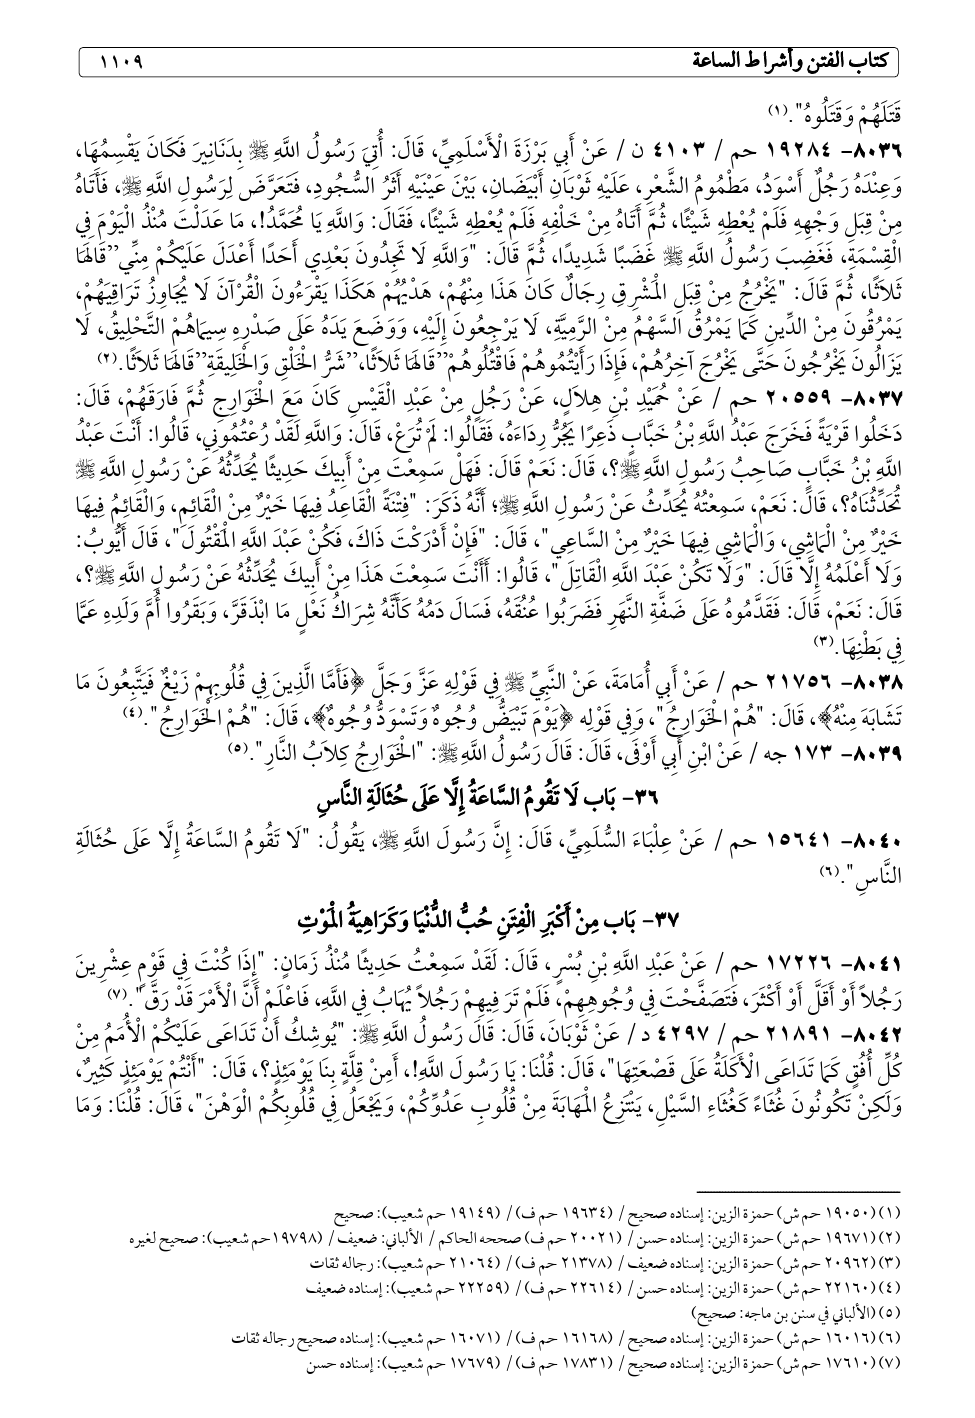 كتاب الفتن وأشراط الساعة ١١٠٩
قَتَلَهُمْ وَقَتَلُوهُ". (١)
٨٠٣٦- ١٩٢٨٤ حم / ٤١٠٣ ن / عَنْ أَبِي بَرْزَةَ الْأَسْلَمِيِّ، قَالَ: أُتِيَ رَسُولُ اللَّهِ ﷺ بِدَنَانِيرَ فَكَانَ يَقْسِمُهَا،
وَعِنْدَهُ رَجُلٌ أَسْوَدُ، مَطْمُومُ الشَّعْرِ، عَلَيْهِ ثَوْبَانِ أَبْيَضَانِ، بَيْنَ عَيْنَيْهِ أَثَرُ السُّجُودِ، فَتَعَرَّضَ لِرَسُولِ اللَّهِ ﷺ، فَأَتَاهُ
مِنْ قِبَلِ وَجْهِهِ فَلَمْ يُعْطِهِ شَيْئًا، ثُمَّ أَتَاهُ مِنْ خَلْفِهِ فَلَمْ يُعْطِهِ شَيْئًا، فَقَالَ: وَاللَّهِ يَا مُحَمَّدُ!، مَا عَدَلْتَ مُنْذُ الْيَوْمَ فِي
الْقِسْمَةِ، فَغَضِبَ رَسُولُ اللَّهِ ﷺ غَضَبًا شَدِيدًا، ثُمَّ قَالَ: "وَاللَّهِ لَا تَجِدُونَ بَعْدِي أَحَدًا أَعْدَلَ عَلَيْكُمْ مِنِّي" قَالَهَا
ثَلَاثًا، ثُمَّ قَالَ: "يَخْرُجُ مِنْ قِبَلِ الْمَشْرِقِ رِجَالٌ كَانَ هَذَا مِنْهُمْ، هَدْيُهُمْ هَكَذَا يَقْرَءُونَ الْقُرْآنَ لَا يُجَاوِزُ تَرَاقِيَهُمْ،
يَمْرُقُونَ مِنْ الدِّينِ كَمَا يَمْرُقُ السَّهْمُ مِنْ الرَّمِيَّةِ، لَا يَرْجِعُونَ إِلَيْهِ، وَوَضَعَ يَدَهُ عَلَى صَدْرِهِ سِيمَاهُمْ التَّحْلِيقُ، لَا
يَزَالُونَ يَخْرُجُونَ حَتَّى يَخْرُجَ آخِرُهُمْ، فَإِذَا رَأَيْتُمُوهُمْ فَاقْتُلُوهُمْ" قَالَهَا ثَلَاثًا، "شَرُّ الْخَلْقِ وَالْخَلِيقَةِ" قَالَهَا ثَلَاثًا. (٢)
٨٠٣٧- ٢٠٥٥٩ حم / عَنْ حُمَيْدِ بْنِ هِلَالٍ، عَنْ رَجُلٍ مِنْ عَبْدِ الْقَيْسِ كَانَ مَعَ الْخَوَارِجِ ثُمَّ فَارَقَهُمْ، قَالَ:
دَخَلُوا قَرْيَةً فَخَرَجَ عَبْدُ اللَّهِ بْنُ خَبَّابٍ ذَعِرًا يَجُرُّ رِدَاءَهُ، فَقَالُوا: لَمْ تُرَعْ، قَالَ: وَاللَّهِ لَقَدْ رُعْتُمُونِي، قَالُوا: أَنْتَ عَبْدُ
اللَّهِ بْنُ خَبَّابٍ صَاحِبُ رَسُولِ اللَّهِ ﷺ؟، قَالَ: نَعَمْ قَالَ: فَهَلْ سَمِعْتَ مِنْ أَبِيكَ حَدِيثًا يُحَدِّثُهُ عَنْ رَسُولِ اللَّهِ ﷺ
تُحَدِّثُنَاهُ؟، قَالَ: نَعَمْ، سَمِعْتُهُ يُحَدِّثُ عَنْ رَسُولِ اللَّهِ ﷺ؛ أَنَّهُ ذَكَرَ: "فِتْنَةً الْقَاعِدُ فِيهَا خَيْرٌ مِنْ الْقَائِمِ، وَالْقَائِمُ فِيهَا
خَيْرٌ مِنْ الْمَاشِي، وَالْمَاشِي فِيهَا خَيْرٌ مِنْ السَّاعِي"، قَالَ: "فَإِنْ أَدْرَكْتَ ذَاكَ، فَكُنْ عَبْدَ اللَّهِ الْمَقْتُولَ"، قَالَ أَيُّوبُ:
وَلَا أَعْلَمُهُ إِلَّا قَالَ: "وَلَا تَكُنْ عَبْدَ اللَّهِ الْقَاتِلَ"، قَالُوا: أَأَنْتَ سَمِعْتَ هَذَا مِنْ أَبِيكَ يُحَدِّثُهُ عَنْ رَسُولِ اللَّهِ ﷺ؟،
قَالَ: نَعَمْ، قَالَ: فَقَدَّمُوهُ عَلَى ضَفَّةِ النَّهَرِ فَضَرَبُوا عُنُقَهُ، فَسَالَ دَمُهُ كَأَنَّهُ شِرَاكُ نَعْلٍ مَا ابْذَقَرَّ، وَبَقَرُوا أُمَّ وَلَدِهِ عَمَّا
فِي بَطْنِهَا. (٣)
٨٠٣٨- ٢١٧٥٦ حم / عَنْ أَبِي أُمَامَةَ، عَنْ النَّبِيِّ ﷺ فِي قَوْلِهِ عَزَّ وَجَلَّ ﴿فَأَمَّا الَّذِينَ فِي قُلُوبِهِمْ زَيْغٌ فَيَتَّبِعُونَ مَا
تَشَابَهَ مِنْهُ﴾، قَالَ: "هُمْ الْخَوَارِجُ"، وَفِي قَوْلِهِ ﴿يَوْمَ تَبْيَضُّ وُجُوهٌ وَتَسْوَدُّ وُجُوهٌ﴾، قَالَ: "هُمْ الْخَوَارِجُ". (٤)
٨٠٣٩- ١٧٣ جه / عَنْ ابْنِ أَبِي أَوْفَى، قَالَ: قَالَ رَسُولُ اللَّهِ ﷺ: "الْخَوَارِجُ كِلَابُ النَّارِ". (٥)
٣٦- بَاب لَا تَقُومُ السَّاعَةُ إِلَّا عَلَى حُثَالَةِ النَّاسِ
٨٠٤٠- ١٥٦٤١ حم / عَنْ عِلْبَاءَ السُّلَمِيِّ، قَالَ: إِنَّ رَسُولَ اللَّهِ ﷺ، يَقُولُ: "لَا تَقُومُ السَّاعَةُ إِلَّا عَلَى حُثَالَةِ
النَّاسِ". (٦)
٣٧- بَاب مِنْ أَكْبَرِ الْفِتَنِ حُبُّ الدُّنْيَا وَكَرَاهِيَةُ الْمَوْتِ
٨٠٤١- ١٧٢٢٦ حم / عَنْ عَبْدِ اللَّهِ بْنِ بُسْرٍ، قَالَ: لَقَدْ سَمِعْتُ حَدِيثًا مُنْذُ زَمَانٍ: "إِذَا كُنْتَ فِي قَوْمٍ عِشْرِينَ
رَجُلاً أَوْ أَقَلَّ أَوْ أَكْثَرَ، فَتَصَفَّحْتَ فِي وُجُوهِهِمْ، فَلَمْ تَرَ فِيهِمْ رَجُلاً يُهَابُ فِي اللَّهِ، فَاعْلَمْ أَنَّ الْأَمْرَ قَدْ رَقَّ". (٧)
٨٠٤٢- ٢١٨٩١ حم / ٤٢٩٧ د / عَنْ ثَوْبَانَ، قَالَ: قَالَ رَسُولُ اللَّهِ ﷺ: "يُوشِكُ أَنْ تَدَاعَى عَلَيْكُمْ الْأُمَمُ مِنْ
كُلِّ أُفُقٍ كَمَا تَدَاعَى الْأَكَلَةُ عَلَى قَصْعَتِهَا"، قَالَ: قُلْنَا: يَا رَسُولَ اللَّهِ!، أَمِنْ قِلَّةٍ بِنَا يَوْمَئِذٍ؟، قَالَ: "أَنْتُمْ يَوْمَئِذٍ كَثِيرٌ،
وَلَكِنْ تَكُونُونَ غُثَاءً كَغُثَاءِ السَّيْلِ، يَنْتَزِعُ الْمَهَابَةَ مِنْ قُلُوبِ عَدُوِّكُمْ، وَيَجْعَلُ فِي قُلُوبِكُمْ الْوَهْنَ"، قَالَ: قُلْنَا: وَمَا
(١) (١٩٠٥٠ حم ش) حمزة الزين: إسناده صحيح / (١٩٦٣٤ حم ف) / (١٩١٤٩ حم شعيب): صحيح
(٢) (١٩٦٧١ حم ش) حمزة الزين: إسناده حسن / (٢٠٠٢١ حم ف) صححه الحاكم / الألباني: ضعيف / (١٩٧٩٨ حم شعيب): صحيح لغيره
(٣) (٢٠٩٦٢ حم ش) حمزة الزين: إسناده ضعيف / (٢١٣٧٨ حم ف) / (٢١٠٦٤ حم شعيب): رجاله ثقات
(٤) (٢٢١٦٠ حم ش) حمزة الزين: إسناده حسن / (٢٢٦١٤ حم ف) / (٢٢٢٥٩ حم شعيب): إسناده ضعيف
(٥) (الألباني في سنن بن ماجه: صحيح)
(٦) (١٦٠١٦ حم ش) حمزة الزين: إسناده صحيح / (١٦١٦٨ حم ف) / (١٦٠٧١ حم شعيب): إسناده صحيح رجاله ثقات
(٧) (١٧٦١٠ حم ش) حمزة الزين: إسناده صحيح / (١٧٨٣١ حم ف) / (١٧٦٧٩ حم شعيب): إسناده حسن